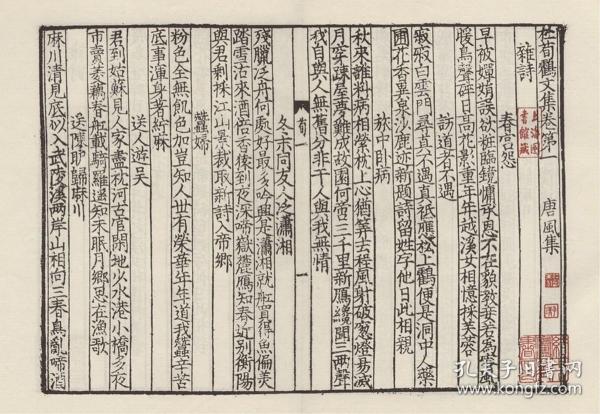 杜荀鶴文集卷第一　唐風集
雜詩
春宮怨
早被嬋娟誤欲粧臨鏡慵承恩不在貌教妾若為容風
暖鳥聲碎日高花影重年年越溪女相憶採芙蓉
訪道者不遇
寂寂白雲門尋真不遇真祇應松上鶴便是洞中人藥
圃花香異泉沙鹿跡新題詩留姓字他日此相親
旅中臥病
秋來誰料病相縈枕上心猶算去程風射破窓燈易滅
月穿疎屋夢難成故園何啻三千里新鴈纔聞三兩聲
我自與人無舊分非干人與我無情
荀一
冬末同友人泛瀟湘
殘臘泛舟何處好最多吟興是瀟湘就舩買得魚偏美
踏雪沽來酒倍香猿到夜深啼嶽麓鴈知春近別衡陽
與君剩採江山景裁取新詩入帝鄉
蠶婦
粉色全無飢色加豈知人世有榮華年年道我蠶辛苦
底事渾身著紵麻
送人遊吳
君到姑蘇見人家盡枕河古宮閑地少水港小橋多夜
市賣菱藕春舩載綺羅遙知未眠月鄉思在漁歌
送陳昈歸麻川
麻川清見底似入武陵溪兩岸山相向三春鳥亂啼酒
上海圖
書館藏
孔夫子旧书网
kongfz.com